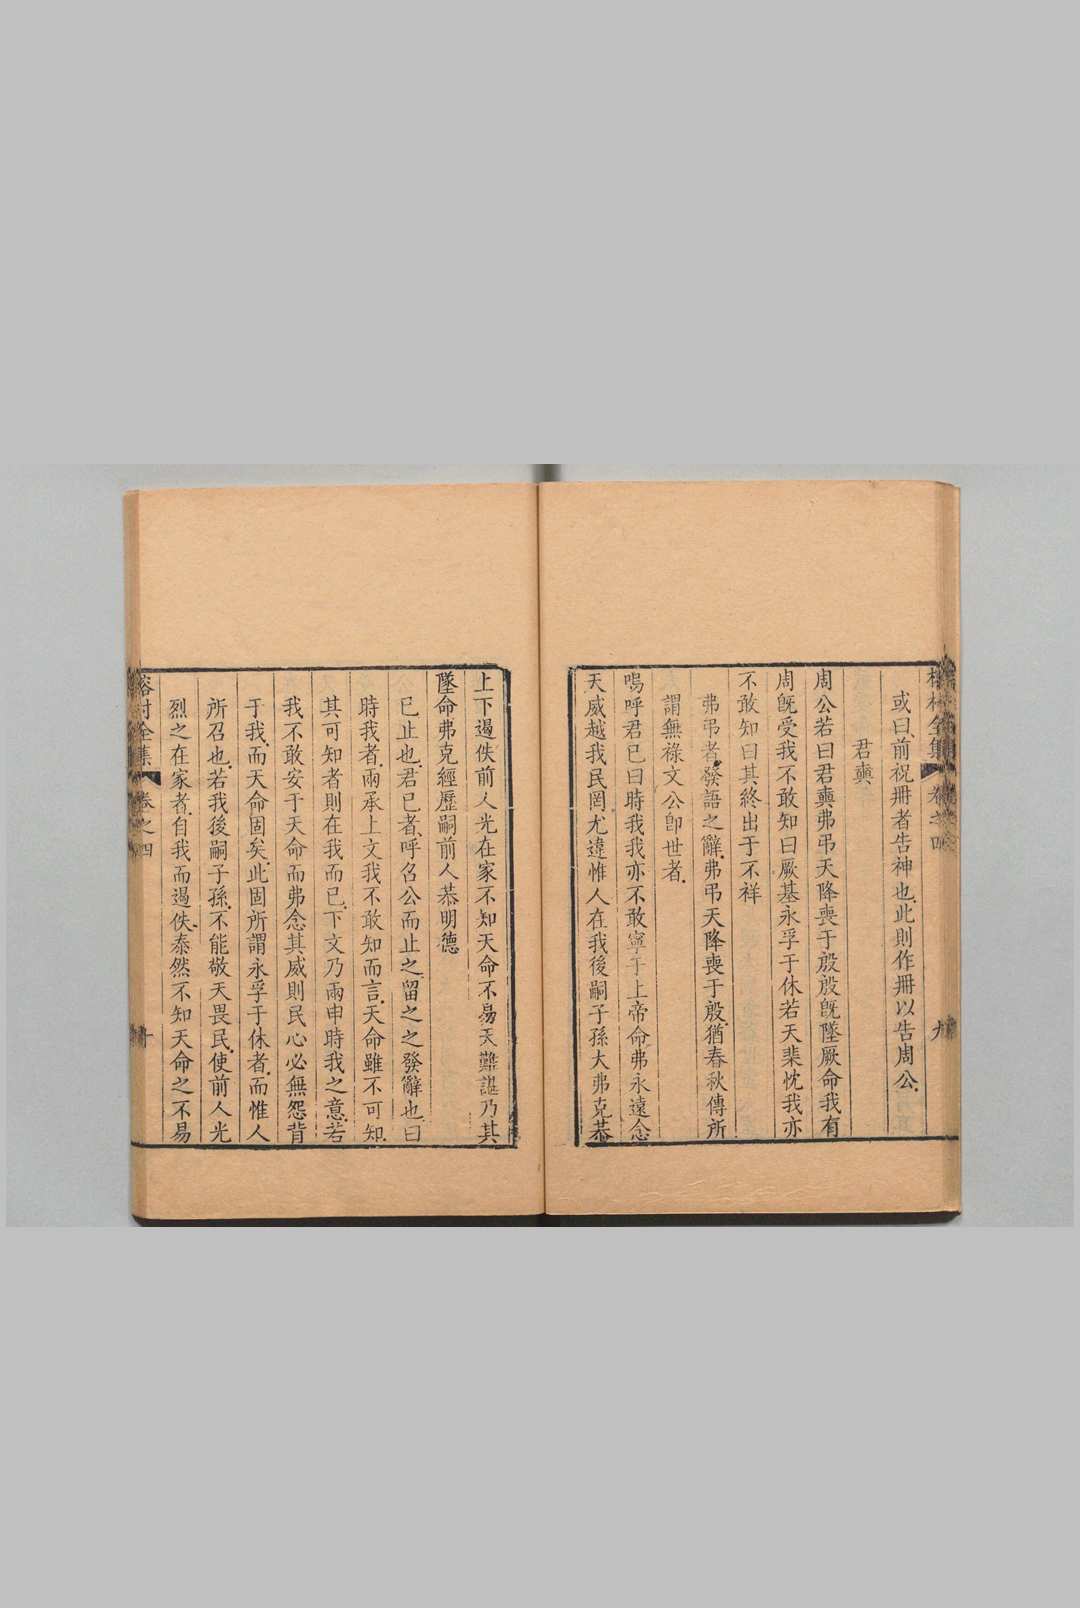 或曰前祝冊者告神也此則作冊以告周公
君奭
周公若曰君奭弗弔天降喪于殷殷旣墜厥命我有
周旣受我不敢知曰厥基永孚于休若天棐忱我亦
不敢知曰其終出于不祥
弗弔者發語之辭弗弔天降喪于殷猶春秋傳所
謂無祿文公卽世者
嗚呼君已曰時我我亦不敢寧于上帝命弗永遠念
天威越我民罔尤違惟人在我後嗣子孫大弗克恭
上下遏佚前人光在家不知天命不易天難諶乃其
墜命弗克經歷嗣前人恭明德
已止也君已者呼召公而止之留之之發辭也曰
時我者兩承上文我不敢知而言天命雖不可知
其可知者則在我而已下文乃兩申時我之意若
我不敢安于天命而弗念其威則民心必無怨背
于我而天命固矣此固所謂永孚于休者而惟人
所召也若我後嗣子孫不能敬天畏民使前人光
烈之在家者自我而遏佚泰然不知天命之不易
榕村全集
卷之四
十
村全集
卷之四
九